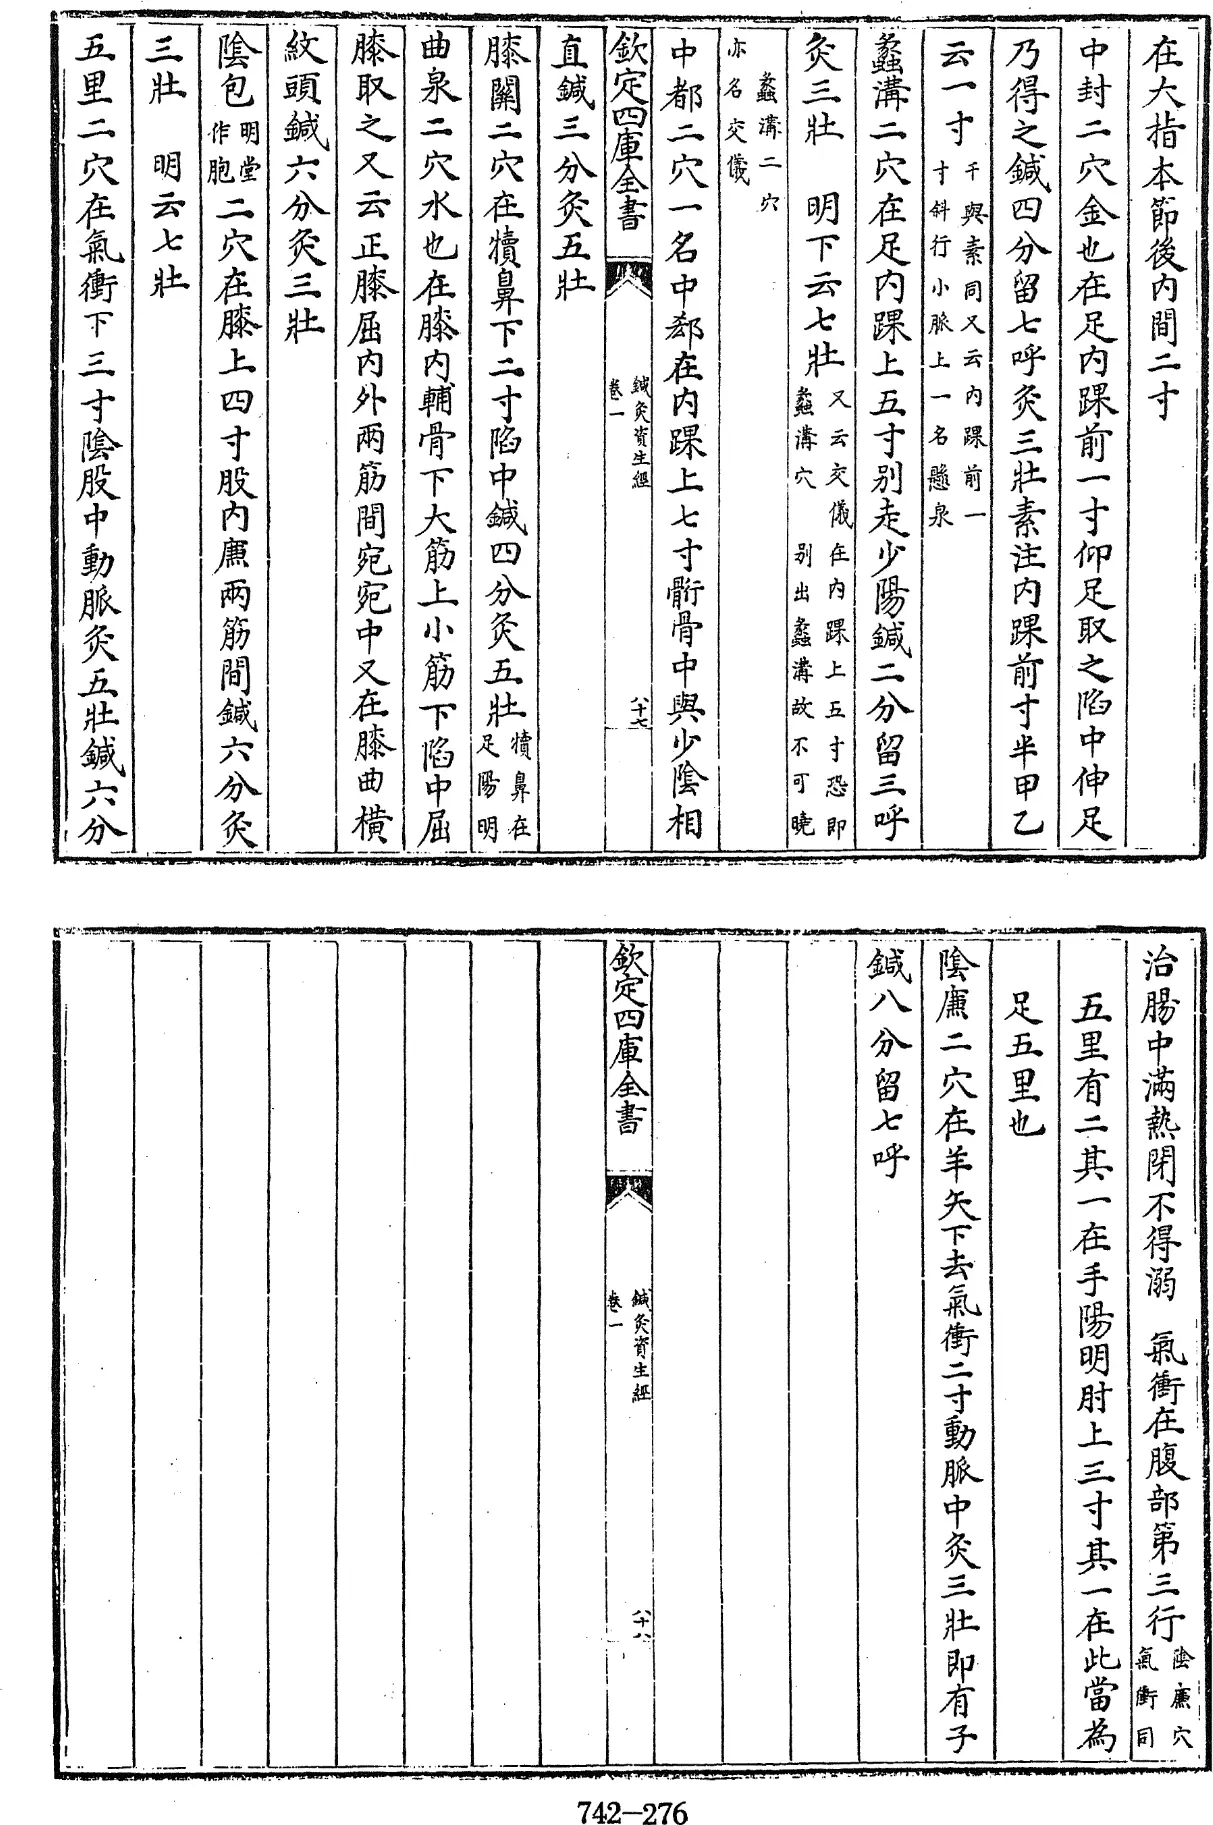 在大指本節後内間二寸
中封二穴金也在足内踝前一寸仰足取之陷中伸足
乃得之鍼四分留七呼灸三壯素注内踝前寸半甲乙
云一寸千與素同又云内踝前一
寸斜行小脈上一名懸泉
蠡溝二穴在足内踝上五寸别走少陽鍼二分留三呼
灸三壯 明下云七壯又云交儀在内踝上五寸恐即
蠡溝穴 别出蠡溝故不可曉
蠡溝二穴
亦名交儀
中都二穴一名中郄在内踝上七寸䯒骨中與少陰相
欽定四庫全書
鍼灸資生經
卷一
八十七
直鍼三分灸五壯
膝關二穴在犢鼻下二寸陷中鍼四分灸五壯犢鼻在
足陽明
曲泉二穴水也在膝内輔骨下大筋上小筋下陷中屈
膝取之又云正膝屈内外兩筋間宛宛中又在膝曲橫
紋頭鍼六分灸三壯
陰包明堂
作胞二穴在膝上四寸股内廉兩筋間鍼六分灸
三壯 明云七壯
五里二穴在氣衝下三寸陰股中動脈灸五壯鍼六分
治腸中滿熱閉不得溺 氣衝在腹部第三行陰廉穴
氣衝同
五里有二其一在手陽明肘上三寸其一在此當為
足五里也
陰廉二穴在羊矢下去氣衝二寸動脈中灸三壯即有子
鍼八分留七呼
欽定四庫全書
鍼灸資生經
卷一
八十八
742-276